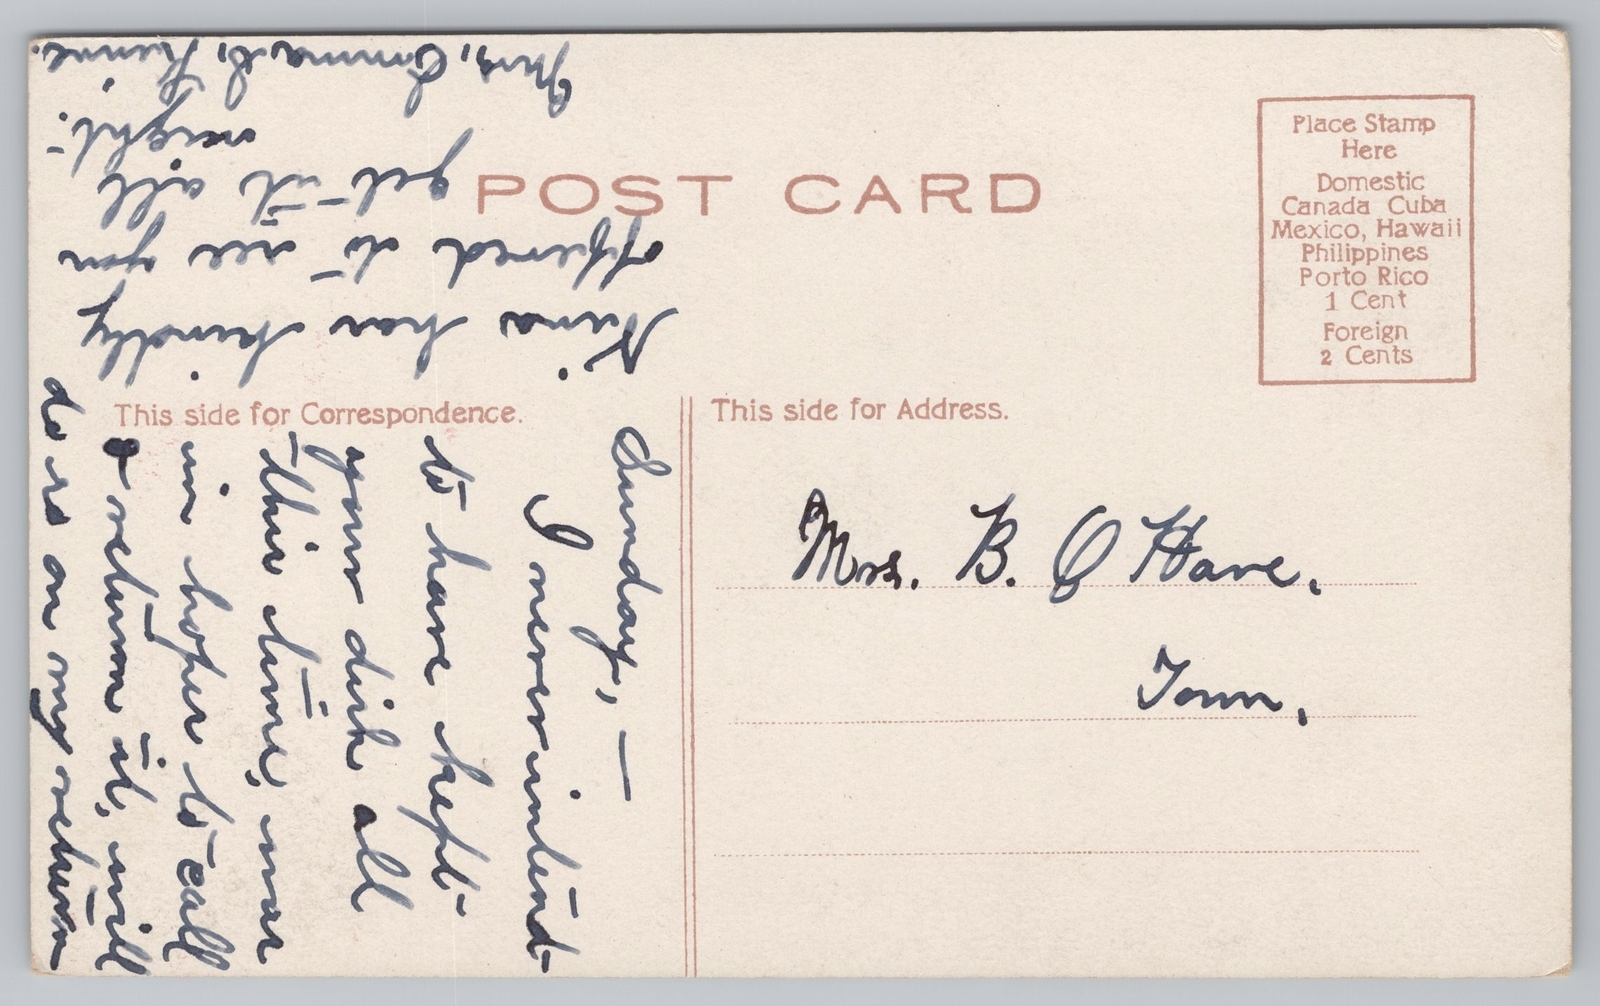 POST CARD
Place Stamp
Here
Domestic
Canada Cuba
Mexico, Hawaii
Philippines
Porto Rico
1 Cent
Foreign
2 Cents
This side for Correspondence.
This side for Address.
Mrs. B. O Hare.
Town.
Sunday, —
I never intend
to have kept
your dish all
this time, was
in hopes to call
& return it, will
do so on my return
Nina has kindly
offered to see you
get it all
right.
Mrs, Emma S,